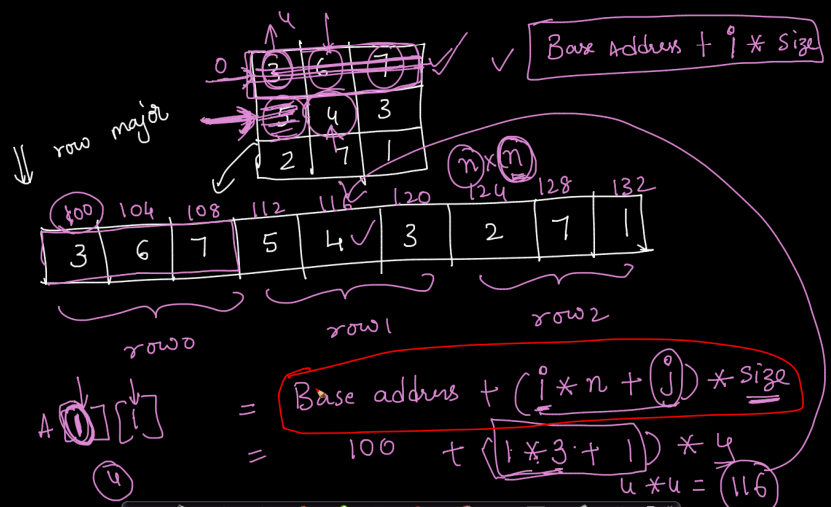 4
Base Address + i * size
0 3 6 7
row major
5 4 3
2 7 1
n x n
100 104 108 112 116 120 124 128 132
3 6 7 5 4 3 2 7 1
row0 row1 row2
A[1][1] = Base address + (i * n + j) * size
= 100 + (1 * 3 + 1) * 4
4
4 * 4 = 116